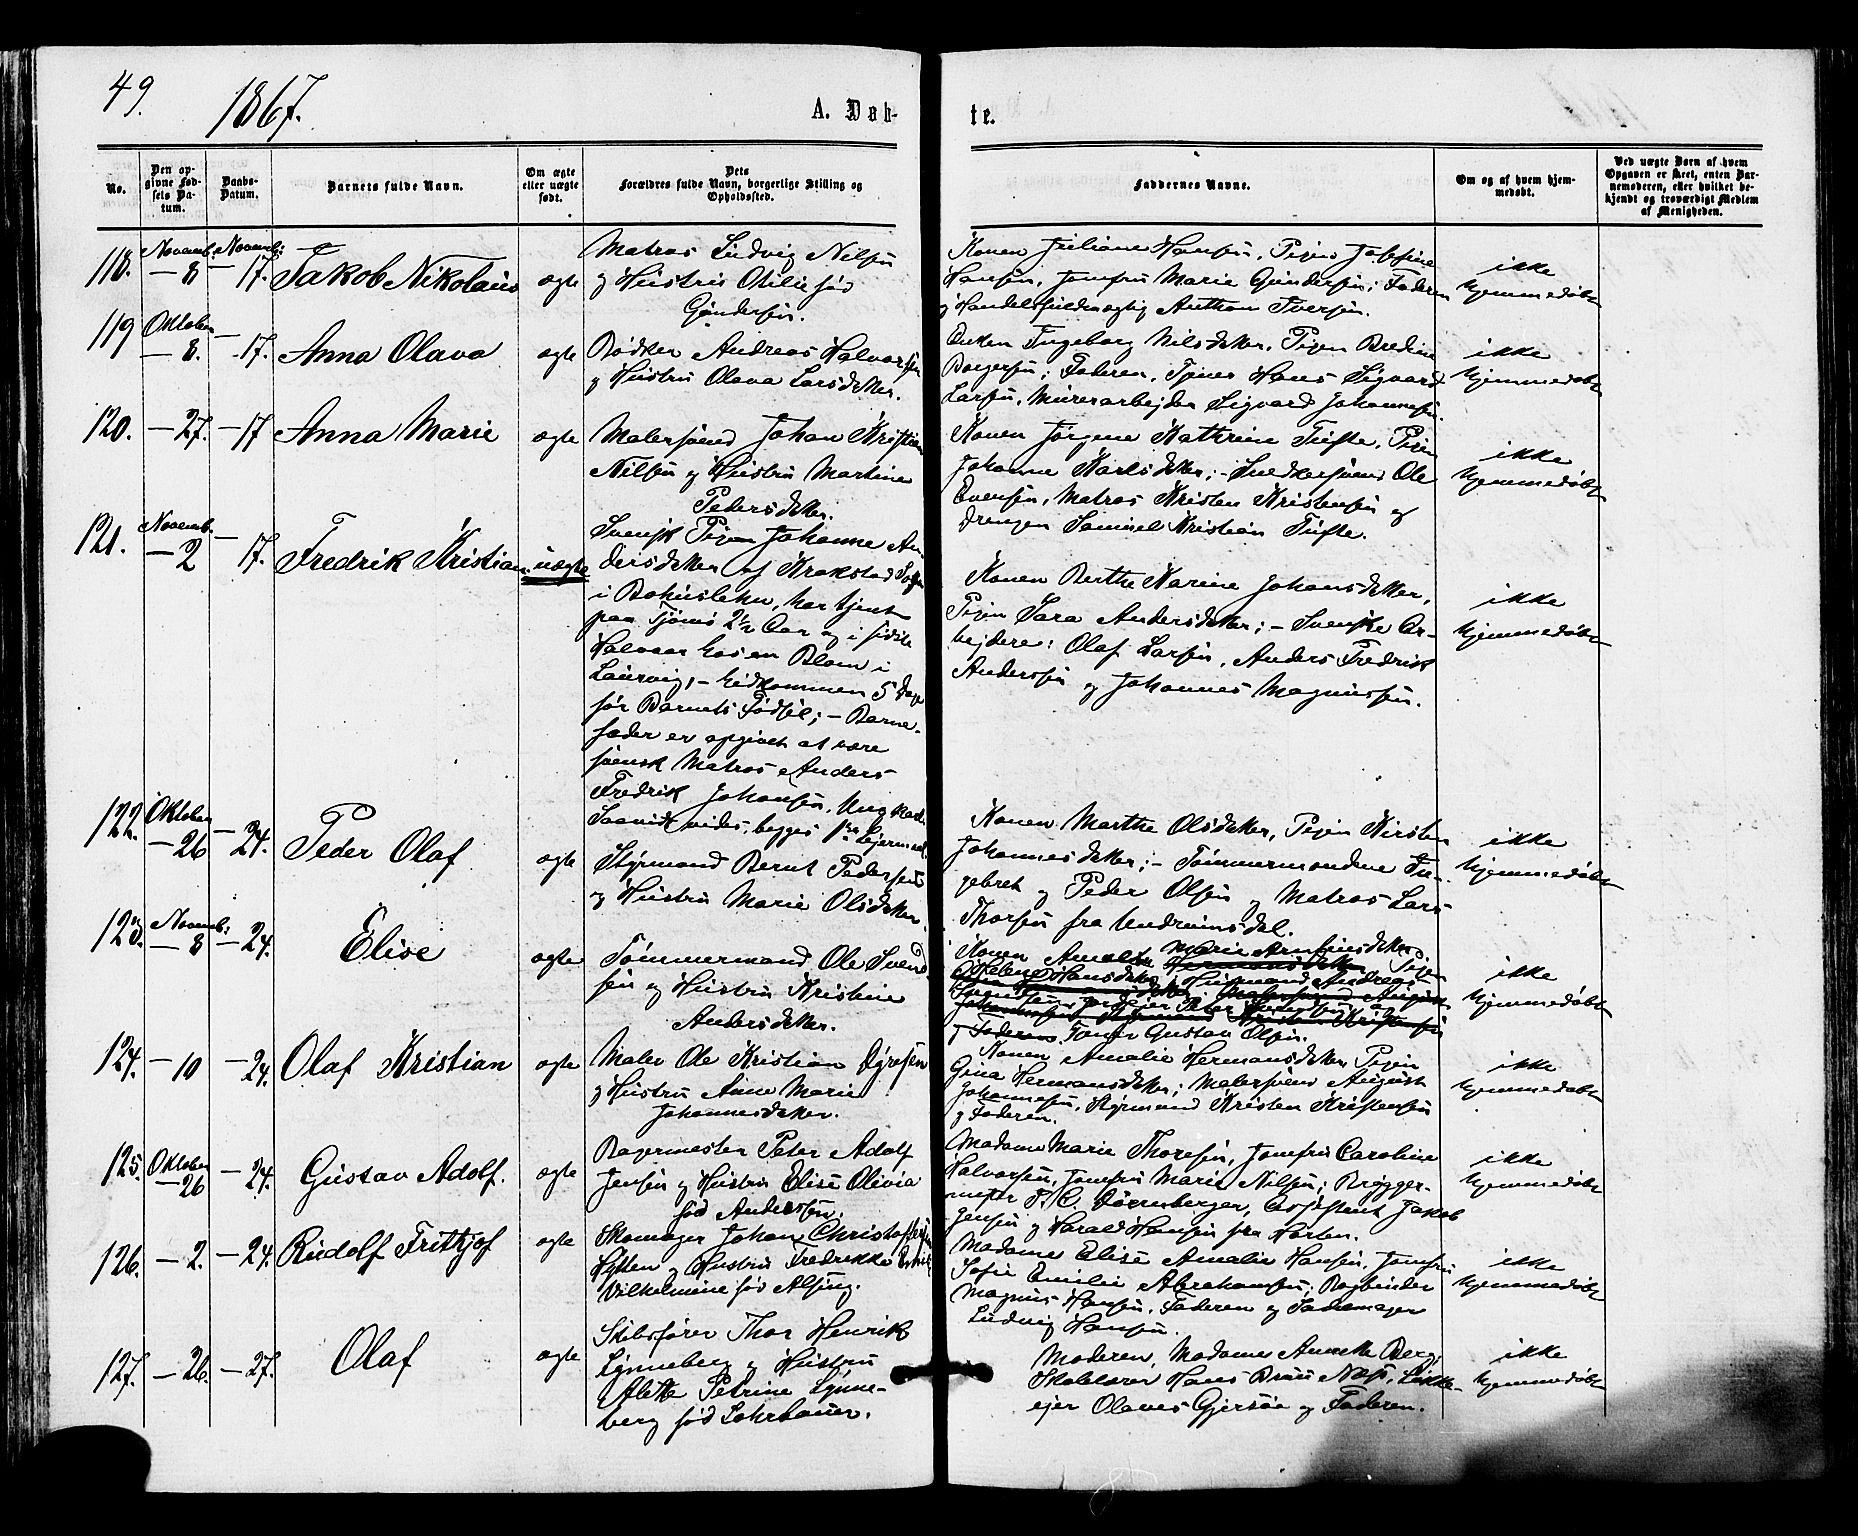 49.
1867.
A. Døb-
te.
No.
Den op-
givne Fød-
sels Da-
tum.
Daabs-
Datum.
Barnets fulde Navn.
Om ægte
eller uægte
født.
Dets
Forældres fulde Navn, borgerlige Stilling og
Opholdssted.
Faddernes Navne.
Om og af hvem hjem-
medøbt.
Ved uægte Børn af hvem
Opgaven er skeet, enten Bar-
nemoderen, eller hvilket be-
kjendt og troværdigt Medlem
af Menigheden.
118. Novemb. – 8 Novemb. – 17. Jakob Nikolaus ægte
Matros Ludvig Nilsen
og Hustru Otilie fød
Gundersen.
Konen Juliane Hansen, Pigen Josefine
Hansen, Jomfru Marie Gundersen; Faderen
og Handelsfuldmægtig Anthon Iversen.
ikke
hjemmedøbt
119 Oktober – 8. – 17. Anna Olava ægte
Bødker Andreas Halvorsen
og Hustru Olava Larsdtter.
Enken Ingeborg Nilsdtter, Pigen Bredine
Borgersen; Faderen, Tjener Hans Sigvard
Larsen, Murerarbejder Sigvard Johannesen.
ikke
hjemmedøbt
120. – 27. – 17 Anna Marie ægte
Malersvend Johan Kristian
Nilsen og Hustru Martine
Pedersdtter.
Konen Jørgine Kathrine Tufte, Pigen
Johanne Karlsdtter; – Snedkersvend Ole
Evensen, Matros Kristen Kristensen og
drengen Samuel Kristian Tufte.
ikke
hjemmedøbt
121. Novemb. – 2 – 17. Fredrik Kristian uægte
Svensk Pigen Johanne An-
dersdtter af Krokstad Sogn
i Bohuslehn, har tjent
paa Tjømø 2½ Aar og i sidste
Halvaar hos en Blom i
Laurvig, – hidkommen 5 Dage
før Barnets Fødsel; – Barne-
fader er opgivet at være
svensk Matros Anders
Fredrik Johansen, Ungkarl
Saavidt vides, begges 1ste Lejermaal.
Konen Berthe Karine Johansdtter,
Pigen Sara Andersdtter; – Svenske Ar-
bejdere: Olaf Larsen, Anders Fredrik
Anderssen og Johannes Magnussen.
ikke
hjemmedøbt
122. Oktober – 26 – 24. Peder Olaf ægte
Styrmand Bernt Pedersen
og Hustru Marie Olsdtter.
Konen Marthe Olsdtter, Pigen Kirsten
Johannesdtter; – Tømmermændene In-
gebret og Peder Olsen og Matros Lars
Thorsen fra Undrumsdal.
ikke
hjemmedøbt
123. Novemb. – 8 – 24. Elise ægte
Tømmermand Ole Svend-
sen og Hustru Kristine
Andersdtter.
Konen Marie Arnfinsdtter Pigen
Helene Hansdtter; Husmand Andreas
Faderen. Gustav Olsen.
ikke
hjemmedøbt
124. – 10 – 24. Olaf Kristian ægte
Maler Ole Kristian Dyresen
og Hustru Anne Marie
Johannesdtter.
Konen Amalie Hermansdtter Pigen
Gina Hermansdtter; Malersvend August
Johannesen, Styrmand Kristen Kristensen
og Faderen.
ikke
hjemmedøbt
125. Oktober – 26 – 24. Gustav Adolf. ægte
Bagermester Peter Adolf
Jensen og Hustru Elise Olivia
fød Anderssen.
Madame Marie Thoresen, Jomfru Caroline
Halvorsen, Jomfru Marie Nilsen; Brygger-
mester P. C. Dørenberger, Assistent Jakob
Jensen og Harald Hansen fra Horten.
ikke
hjemmedøbt
126. – 2. – 24. Rudolf Frithjof ægte
Skomager Johan Christoffersen
Hytten og Hustru Fredrikke Emilie
Vilhelmine fød Alsing.
Madame Elise Amalie Hansen, Jomfru
Sofie Emilie Abrahamsen; Bogbinder
Magnus Hansen, Faderen og Sadelmager
Ludvig Hansen.
ikke
hjemmedøbt
127. – 26. – 27. Olaf ægte
Skibsfører Thor Henrik
Lynneberg og Hustru
Alette Petrine Lynne-
berg fød Lohrbauer.
Moderen, Madame Annette Berg;
Skolelærer Hans Bruu Næss, Løkke-
ejer Olaves Gjersøe og Faderen.
ikke
hjemmedøbt